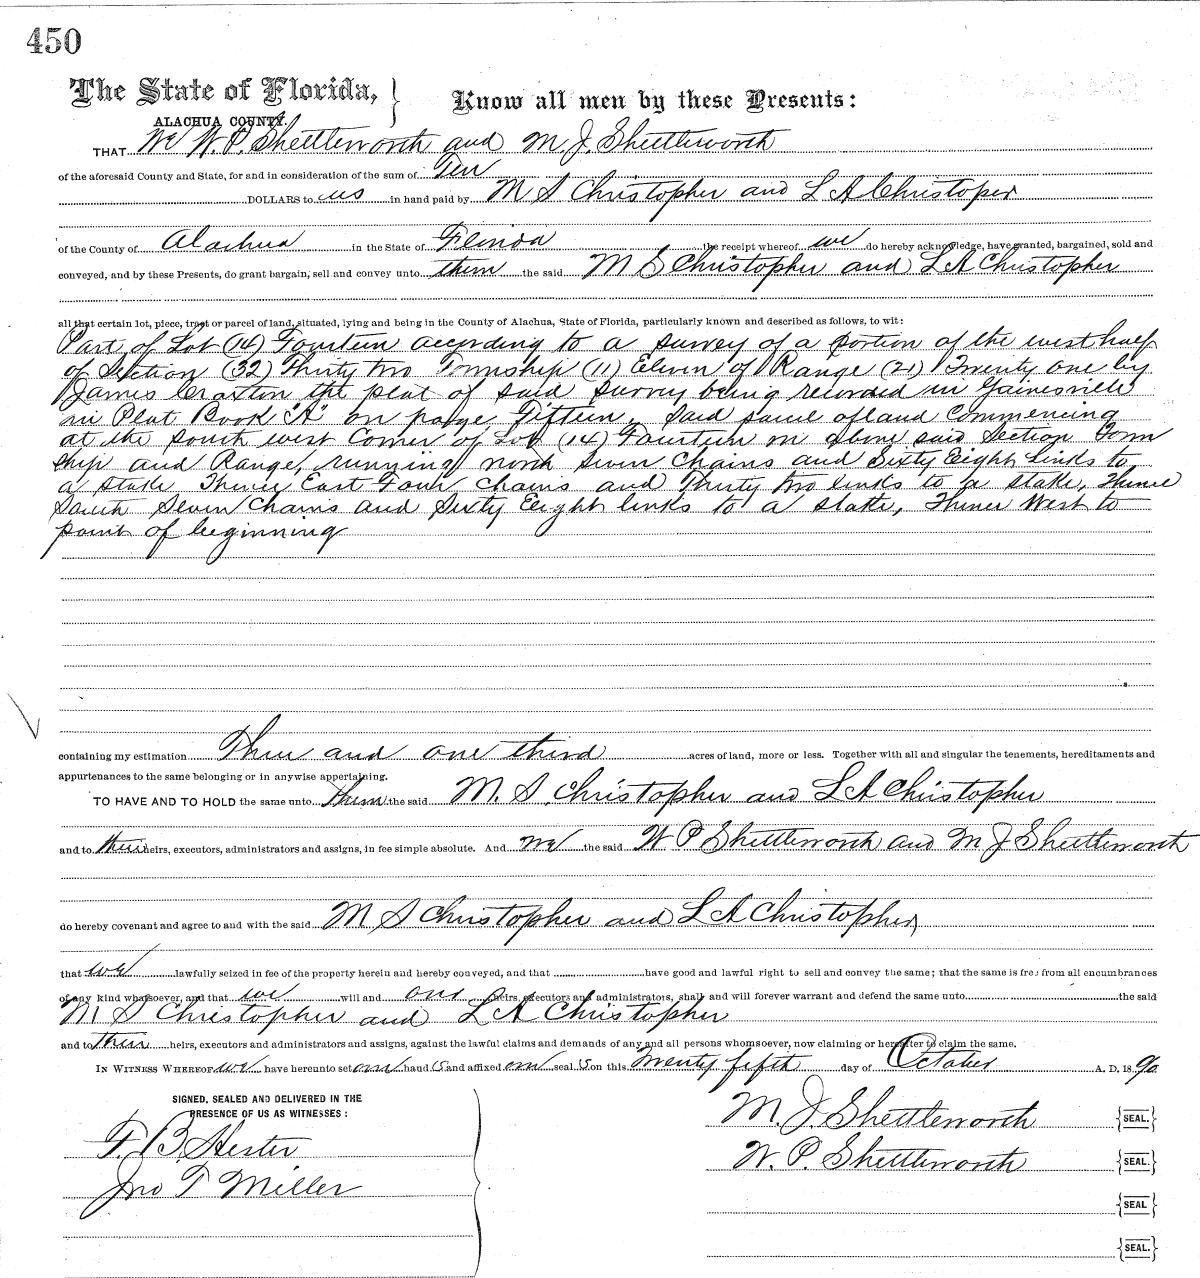 450
The State of Florida, } Know all men by these Presents:
ALACHUA COUNTY.
THAT We W. P. Shettleworth and M. J. Shettleworth
of the aforesaid County and State, for and in consideration of the sum of Ten
DOLLARS to us in hand paid by M S Christopher and L A Christoper
of the County of Alachua in the State of Florida the receipt whereof we do hereby acknowledge, have granted, bargained, sold and
conveyed, and by these Presents, do grant bargain, sell and convey unto them the said M S Christopher and L A Christopher
all that certain lot, piece, tract or parcel of land, situated, lying and being in the County of Alachua, State of Florida, particularly known and described as follows, to wit:
Part of Lot (14) Fourteen according to a survey of a portion of the west half
of Section (32) Thirty two Township (11) Eleven of Range (21) Twenty one by
James Croxton the plat of said survey being recorded in Gainesville
in Plat Book "A" on page Fifteen, Said parcel of land Commencing
at the South west Corner of Lot (14) Fourteen in above said Section Town
ship and Range, running north Seven Chains and Sixty Eight Links to
a stake Thence East Four Chains and Thirty two links to a stake, Thence
South Seven Chains and Sixty Eight links to a stake, Thence West to
point of beginning
containing my estimation Three and one third acres of land, more or less. Together with all and singular the tenements, hereditaments and
appurtenances to the same belonging or in anywise appertaining.
TO HAVE AND TO HOLD the same unto them the said M. S. Christopher and L A Christopher
and to their heirs, executors, administrators and assigns, in fee simple absolute. And we the said W P Shettleworth and M J Shettleworth
do hereby covenant and agree to and with the said M S Christopher and L A Christopher
that we lawfully seized in fee of the property herein and hereby conveyed, and that have good and lawful right to sell and convey the same; that the same is free from all encumbrances
of any kind whatsoever, and that we will and our heirs, executors and administrators, shall and will forever warrant and defend the same unto the said
M S Christopher and L A Christopher
and to their heirs, executors and administrators and assigns, against the lawful claims and demands of any and all persons whomsoever, now claiming or hereafter to claim the same.
IN WITNESS WHEREOF we have hereunto set our hand s and affixed our seal s on this Twenty fifth day of October A. D. 1890
SIGNED, SEALED AND DELIVERED IN THE
PRESENCE OF US AS WITNESSES:
F. B. Hester
Jno T Miller
M. J. Shettleworth {SEAL.}
W. P. Shettleworth {SEAL.}
{SEAL}
{SEAL.}